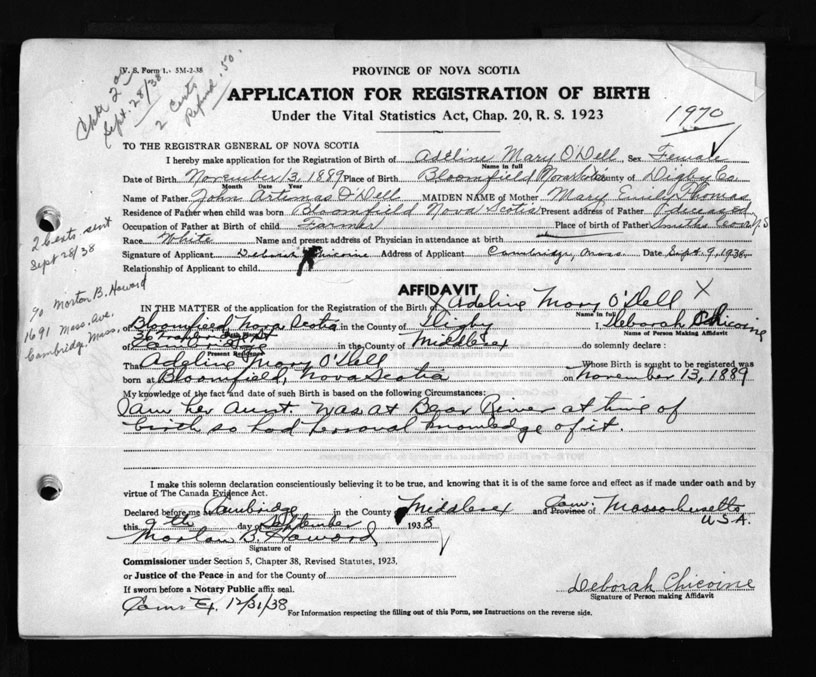 V. S. Form 1.- 5M-2-38
PROVINCE OF NOVA SCOTIA
APPLICATION FOR REGISTRATION OF BIRTH
Under the Vital Statistics Act, Chap. 20, R. S. 1923
1970
Sept. 28/38
2 Certs
Refund .50.
TO THE REGISTRAR GENERAL OF NOVA SCOTIA
I hereby make application for the Registration of Birth of Adeline Mary O'Dell, Sex Female
Name in full
Date of Birth November 13, 1889 Place of Birth Bloomfield Nova Scotia County of Digby Co.
Month Date Year
Name of Father John Artemas O'Dell MAIDEN NAME of Mother Mary Emily Thomas
Residence of Father when child was born Bloomfield Nova Scotia Present address of Father Deceased
Occupation of Father at Birth of child Farmer Place of birth of Father Smiths Cove, N.S
Race White Name and present address of Physician in attendance at birth
Signature of Applicant Deborah Chicoine Address of Applicant Cambridge, Mass. Date Sept. 9, 1938
Relationship of Applicant to child
2 Certs sent
Sept 28/38
% Morton B. Howard
1691 Mass. Ave.
Cambridge, Mass.
AFFIDAVIT
IN THE MATTER of the application for the Registration of the Birth of X Adeline Mary O'Dell X
Name in full
of Bloomfield, Nova Scotia in the County of Digby I, Deborah Chicoine
Name of Person Making Affidavit
of Cambridge in the County of Middlesex do solemnly declare :
Present Residence
That Adeline Mary O'Dell Whose Birth is sought to be registered was
born at Bloomfield, Nova Scotia on November 13, 1889
My knowledge of the fact and date of such Birth is based on the following Circumstances:
I am her aunt. Was at Bear River at time of
birth so had personal knowledge of it.
I make this solemn declaration conscientiously believing it to be true, and knowing that it is of the same force and effect as if made under oath and by
virtue of The Canada Evidence Act.
Declared before me at Cambridge in the County Middlesex and Province of Com. Massachusetts
U.S.A.
this 9th day of September 1938
Morton B. Howard
Signature of
Commissioner under Section 5, Chapter 38, Revised Statutes, 1923,
or Justice of the Peace in and for the County of
If sworn before a Notary Public affix seal.
Deborah Chicoine
Signature of Person making Affidavit
Com. Ex. 12/31/38
For Information respecting the filling out of this Form, see Instructions on the reverse side.